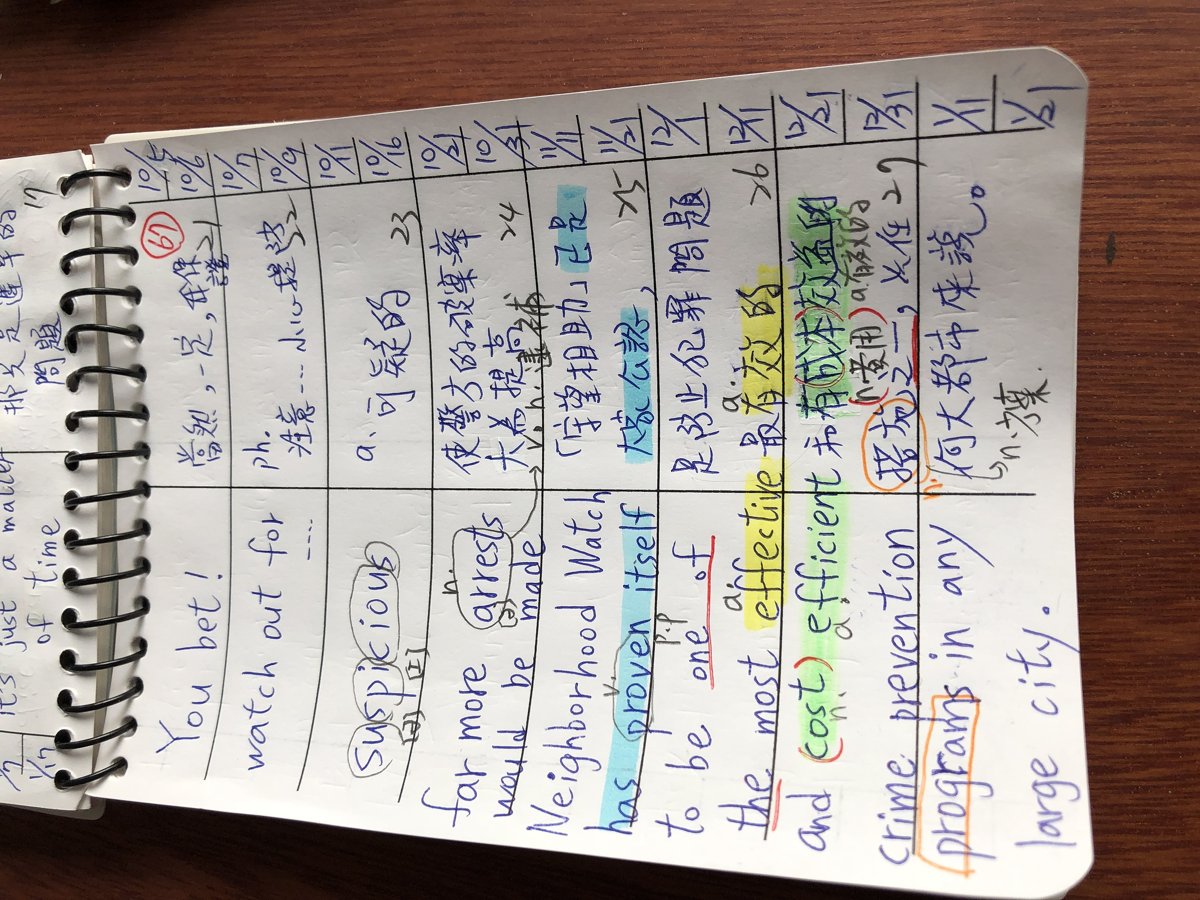 it's just a matter
of time
問題
17
1/17
61
You bet!
當然,一定,我保證
21
watch out for
....
ph.
注意...小心提防
22
suspicious
[ə] [ɪ]
a. 可疑的
23
far more arrests
n.
[ə]
would be made
使警方的破案率
大為提高
24
Neighborhood Watch
has proven itself
v.
p.p
「守望相助」已是
大家公認,
25
to be one of
是防止犯罪問題
the most effective
a.
a.
最有效的
26
and (cost) efficient
n. a.
和有(成本)效益的
(n.費用) a.有效的
crime prevention
措施之一,尤任
27
n.
programs in any
何大都市來說。
large city.
n.方案.
10/5
10/6
10/7
10/9
10/11
10/16
10/21
10/31
11/11
11/21
12/1
12/11
12/21
12/31
1/11
1/21